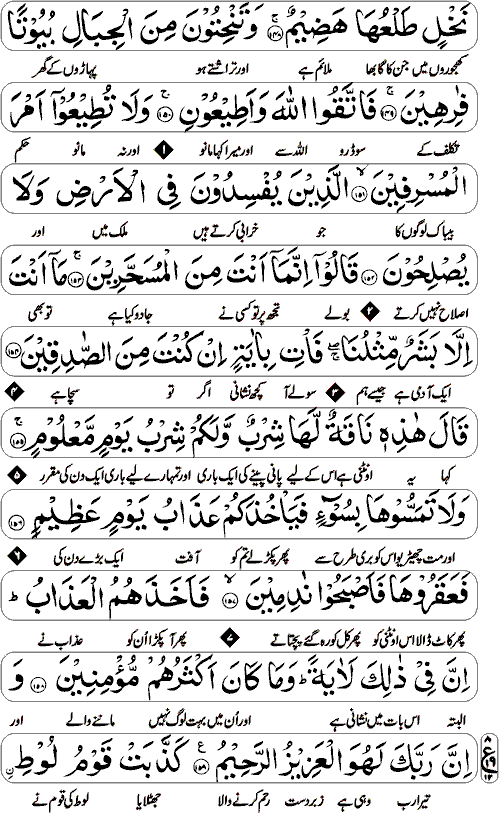 نَخۡلٍ طَلۡعُهَا هَضِيۡمٌۚ ﴿۱۴۸﴾ وَتَنۡحِتُوۡنَ مِنَ الۡجِبَالِ بُيُوۡتًا
کھجوروں میں جن کا گابھا ملائم ہے اور تراشتے ہو پہاڑوں کے گھر
فٰرِهِيۡنَۚ ﴿۱۴۹﴾ فَاتَّقُوا اللّٰهَ وَاَطِيۡعُوۡنِۚ ﴿۱۵۰﴾ وَلَا تُطِيۡعُوۡۤا اَمۡرَ
تکلف کے سو ڈرو اللہ سے اور میرا کہا مانو ۱ اور نہ مانو حکم
الۡمُسۡرِفِيۡنَۙ ﴿۱۵۱﴾ الَّذِيۡنَ يُفۡسِدُوۡنَ فِى الۡاَرۡضِ وَلَا
بیباک لوگوں کا جو خرابی کرتے ہیں ملک میں اور
يُصۡلِحُوۡنَ ﴿۱۵۲﴾ قَالُوۡۤا اِنَّمَاۤ اَنۡتَ مِنَ الۡمُسَحَّرِيۡنَۚ ﴿۱۵۳﴾ مَاۤ اَنۡتَ
اصلاح نہیں کرتے ۲ بولے تجھ پر تو کسی نے جادو کیا ہے تو بھی
اِلَّا بَشَرٌ مِّثۡلُنَا ۖۚ فَاۡتِ بِاٰيَةٍ اِنۡ كُنۡتَ مِنَ الصّٰدِقِيۡنَ ﴿۱۵۴﴾
ایک آدمی ہے جیسے ہم ۳ سو لے آ کچھ نشانی اگر تو سچا ہے ۴
قَالَ هٰذِهٖ نَاقَةٌ لَّهَا شِرۡبٌ وَّلَكُمۡ شِرۡبُ يَوۡمٍ مَّعۡلُوۡمٍۚ ﴿۱۵۵﴾
کہا یہ اونٹنی ہے اس کے لیے پانی پینے کی ایک باری اور تمہارے لیے باری ایک دن کی مقرر ۵
وَلَا تَمَسُّوۡهَا بِسُوۡٓءٍ فَيَاۡخُذَكُمۡ عَذَابُ يَوۡمٍ عَظِيۡمٍ ﴿۱۵۶﴾
اور مت چھیڑیو اس کو بری طرح سے پھر پکڑ لے تم کو آفت ایک بڑے دن کی ۶
فَعَقَرُوۡهَا فَاَصۡبَحُوۡا نٰدِمِيۡنَۙ ﴿۱۵۷﴾ فَاَخَذَهُمُ الۡعَذَابُ‌ؕ
پھر کاٹ ڈالا اس اونٹنی کو پھر کل کو رہ گئے پچتاتے ۷ پھر آ پکڑا اُن کو عذاب نے
اِنَّ فِىۡ ذٰلِكَ لَاٰيَةً‌ ؕ وَمَا كَانَ اَكۡثَرُهُمۡ مُّؤۡمِنِيۡنَ ﴿۱۵۸﴾ وَ
البتہ اس بات میں نشانی ہے اور اُن میں بہت لوگ نہیں ماننے والے اور
اِنَّ رَبَّكَ لَهُوَ الۡعَزِيۡزُ الرَّحِيۡمُ ﴿۱۵۹﴾ كَذَّبَتۡ قَوۡمُ لُوۡطِ
تیرا رب وہی ہے زبردست رحم کرنے والا جھٹلایا لوط کی قوم نے